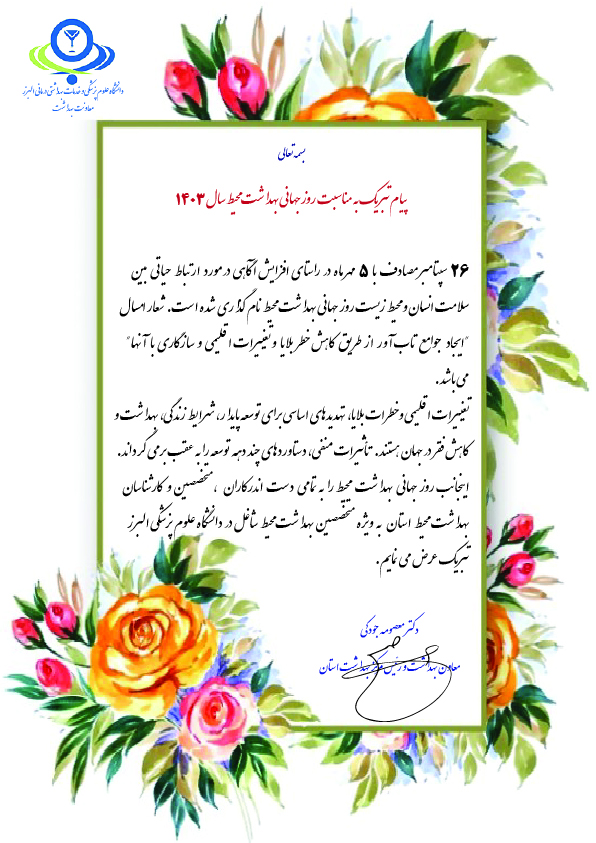 دانشگاه علوم پزشکی و خدمات بهداشتی درمانی البرز
معاونت بهداشت
بسمه تعالی
پیام تبریک به مناسبت روز جهانی بهداشت محیط سال ۱۴۰۳
۲۶ سپتامبر مصادف با ۵ مهرماه در راستای افزایش آگاهی در مورد ارتباط حیاتی بین
سلامت انسان و محیط زیست روز جهانی بهداشت محیط نام گذاری شده است. شعار امسال
"ایجاد جوامع تاب آور از طریق کاهش خطر بلایا و تغییرات اقلیمی و سازگاری با آنها"
می باشد.
تغییرات اقلیمی و خطرات بلایا، تهدیدهای اساسی برای توسعه پایدار، شرایط زندگی، بهداشت و
کاهش فقر در جهان هستند. تأثیرات منفی، دستاوردهای چند دهه توسعه را به عقب برمی گرداند.
اینجانب روز جهانی بهداشت محیط را به تمامی دست اندرکاران ، متخصصین و کارشناسان
بهداشت محیط استان به ویژه متخصصین بهداشت محیط شاغل در دانشگاه علوم پزشکی البرز
تبریک عرض می نمایم.
دکتر معصومه جودکی
معاون بهداشت و رئیس مرکز بهداشت استان